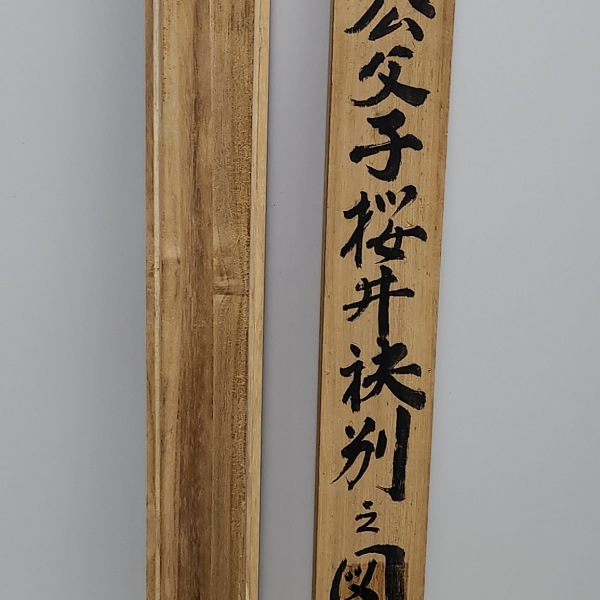 公父子桜井袂別之図